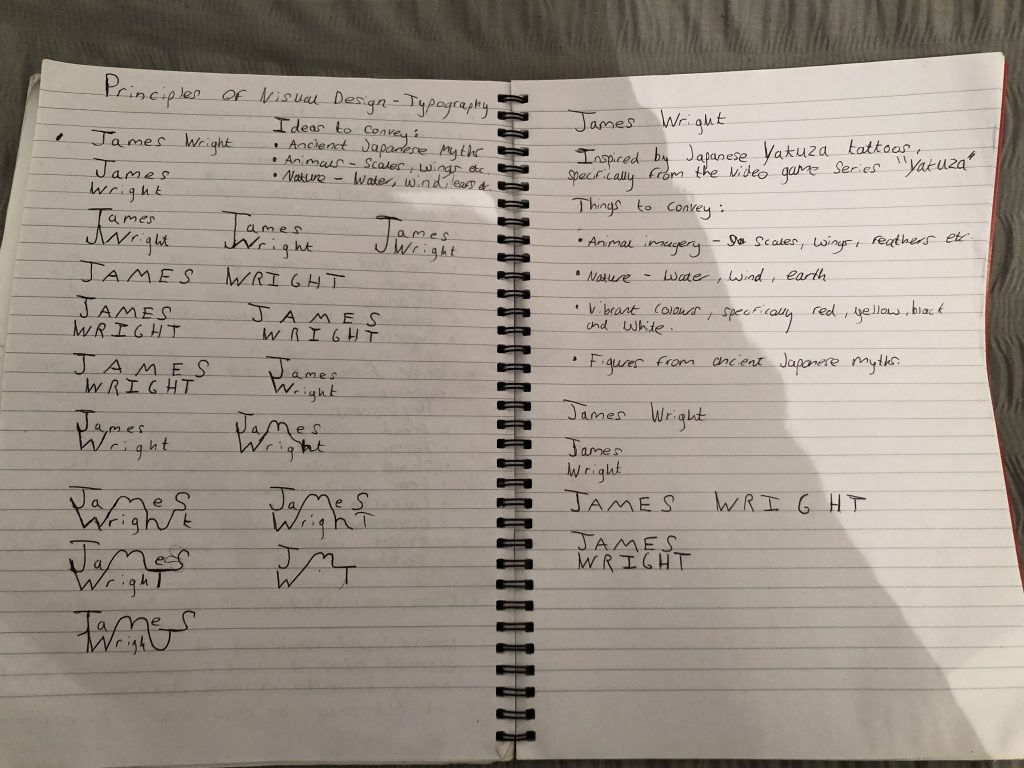 Principles of Visual Design - Typography
James Wright
Ideas to convey:
• Ancienct Japanese Myths
• Animals - Scales, wings etc.
• Nature - Water, wind, etc.
James
Wright
James
Wright
James
Wright
James
Wright
JAMES WRIGHT
JAMES
WRIGHT
JAMES
WRIGHT
JAMES
WRIGHT
James
Wright
James
Wright
James
Wright
JameS
Wright
JameS
WrighT
JameS
WrighT
J m
W T
JameS
Wright
James Wright
Inspired by Japanese Yakuza tattoos,
specifically from the video game series "Yakuza"
Things to convey:
• Animal imagery - Scales, wings, feathers etc.
• Nature - Water, wind, earth
• Vibrant colours, specifically red, yellow, black
and white.
• Figures from ancient Japanese myths.
James Wright
James
Wright
JAMES WRIGHT
JAMES
WRIGHT